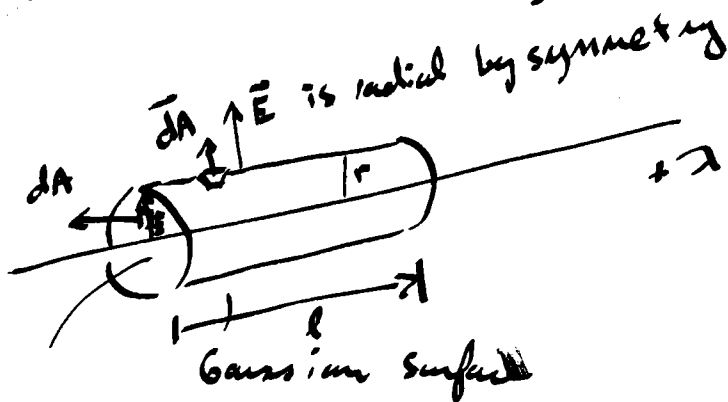 E⃗ is radial by symmetry
d⃗A
dA
E
r
+ λ
l
Gaussian surface